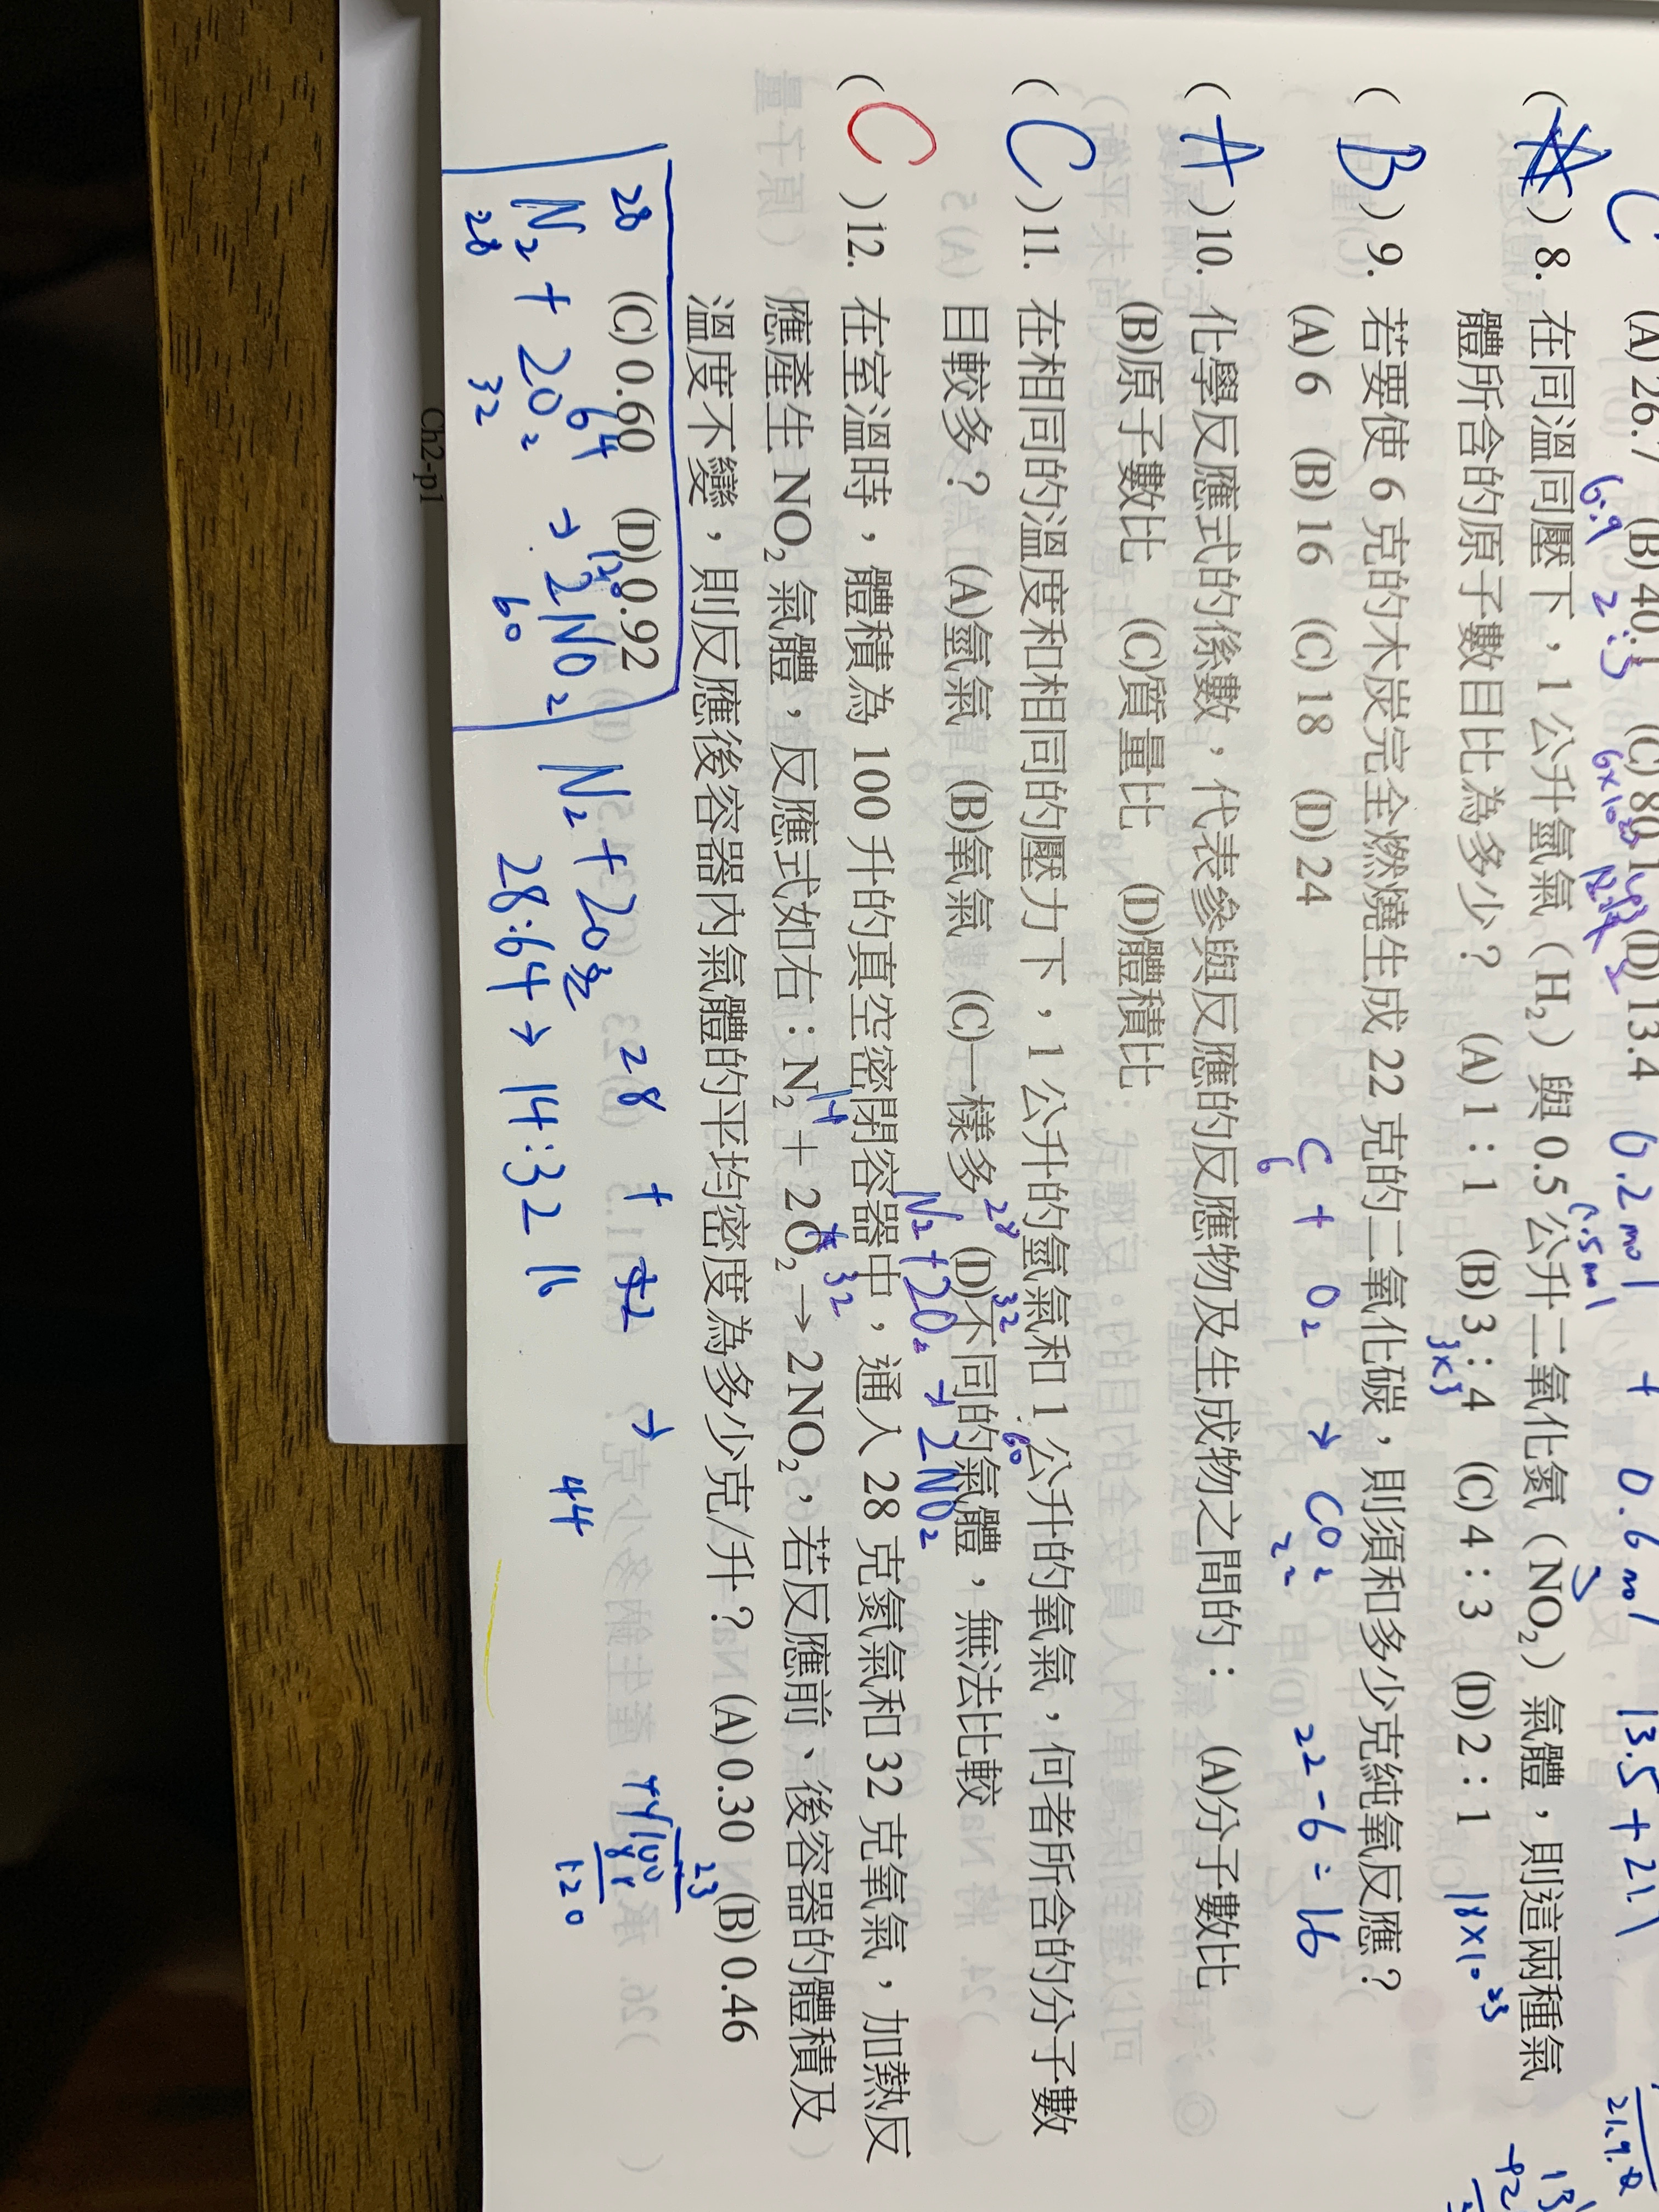 C (A) 26.7 (B) 40.1 (C) 80.1 (D) 13.4 0.2 mol + 0.6 mol 13.5 + 21.
6.9 2:3 6×10²³
( ) 8. 在同溫同壓下，1 公升氫氣（H₂）與 0.5 公升二氧化氮（NO₂）氣體，則這兩種氣
體所含的原子數目比為多少？ (A) 1：1 (B) 3：4 (C) 4：3 (D) 2：1 18×10²³
3×3
( B ) 9. 若要使 6 克的木炭完全燃燒生成 22 克的二氧化碳，則須和多少克純氧反應？
(A) 6 (B) 16 (C) 18 (D) 24 C + O₂ → CO₂ 22-6=16
6 22
( A ) 10. 化學反應式的係數，代表參與反應的反應物及生成物之間的： (A)分子數比
(B)原子數比 (C)質量比 (D)體積比
( C ) 11. 在相同的溫度和相同的壓力下，1 公升的氫氣和 1 公升的氧氣，何者所含的分子數
目較多？ (A)氫氣 (B)氧氣 (C)一樣多 (D)不同的氣體，無法比較
28 32 60
N₂ + 2O₂ → 2NO₂
( C ) 12. 在室溫時，體積為 100 升的真空密閉容器中，通入 28 克氮氣和 32 克氧氣，加熱反
14 32
應產生 NO₂ 氣體，反應式如右：N₂ + 2O₂ → 2NO₂，若反應前、後容器的體積及
溫度不變，則反應後容器內氣體的平均密度為多少克/升？ (A) 0.30 (B) 0.46
(C) 0.60 (D) 0.92
28 64
N₂ + 2O₂ → 2NO₂
28 32 60
N₂ + 2O
28:64 → 14:32 16
28 + → 44
23
44/100
88
120
Ch2-p1